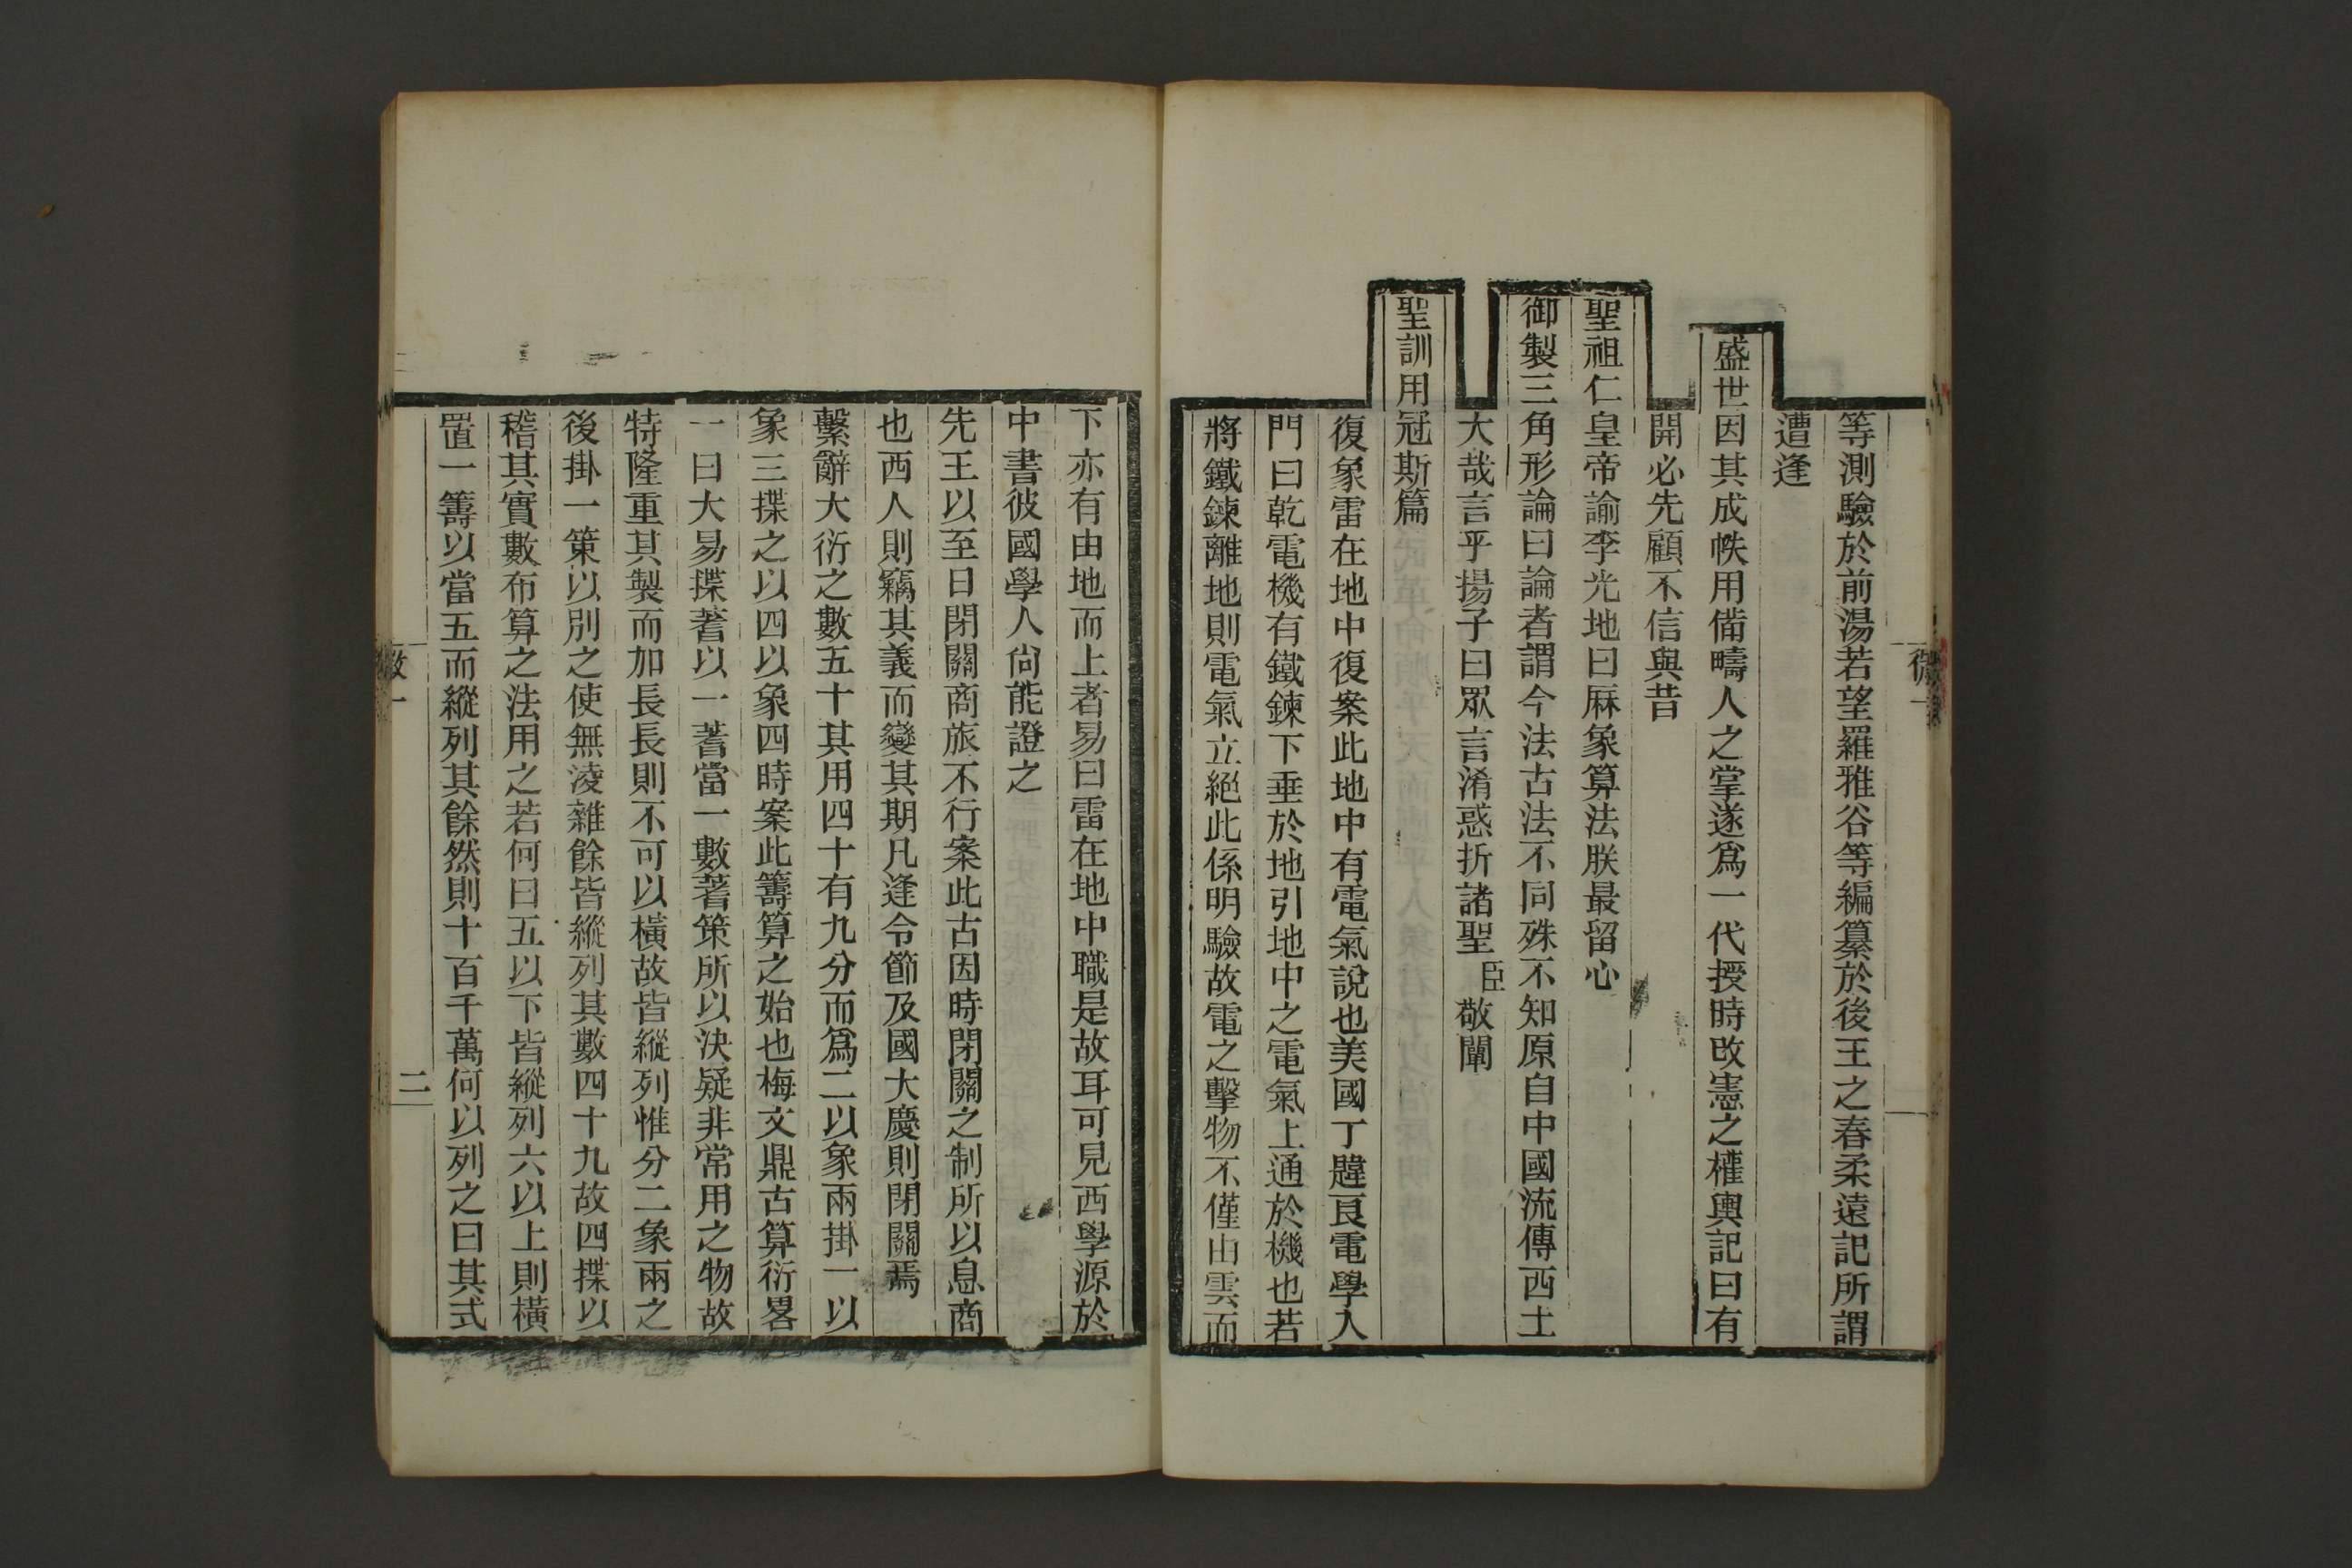 等測驗於前湯若望羅雅谷等編纂於後王之春柔遠記所謂
遭逢
盛世因其成帙用備疇人之掌遂爲一代授時改憲之權輿記曰有
開必先顧不信與昔
聖祖仁皇帝諭李光地曰厤象算法朕最留心
御製三角形論曰論者謂今法古法不同殊不知原自中國流傳西土
大哉言乎揚子曰眾言淆惑折諸聖臣敬闡
聖訓用冠斯篇
復象雷在地中復案此地中有電氣說也美國丁韙良電學入
門曰乾電機有鐵鍊下垂於地引地中之電氣上通於機也若
將鐵鍊離地則電氣立絕此係明驗故電之擊物不僅由雲而
下亦有由地而上者易曰雷在地中職是故耳可見西學源於
中書彼國學人尙能證之
先王以至日閉關商旅不行案此古因時閉關之制所以息商
也西人則竊其義而變其期凡逢令節及國大慶則閉關焉
繫辭大衍之數五十其用四十有九分而爲二以象兩掛一以
象三揲之以四以象四時案此籌算之始也梅文鼎古算衍畧
一曰大易揲蓍以一蓍當一數蓍策所以決疑非常用之物故
特隆重其製而加長長則不可以橫故皆縱列惟分二象兩之
後掛一策以別之使無淩雜餘皆縱列其數四十九故四揲以
稽其實數布算之法用之若何曰五以下皆縱列六以上則橫
置一籌以當五而縱列其餘然則十百千萬何以列之曰其式
二